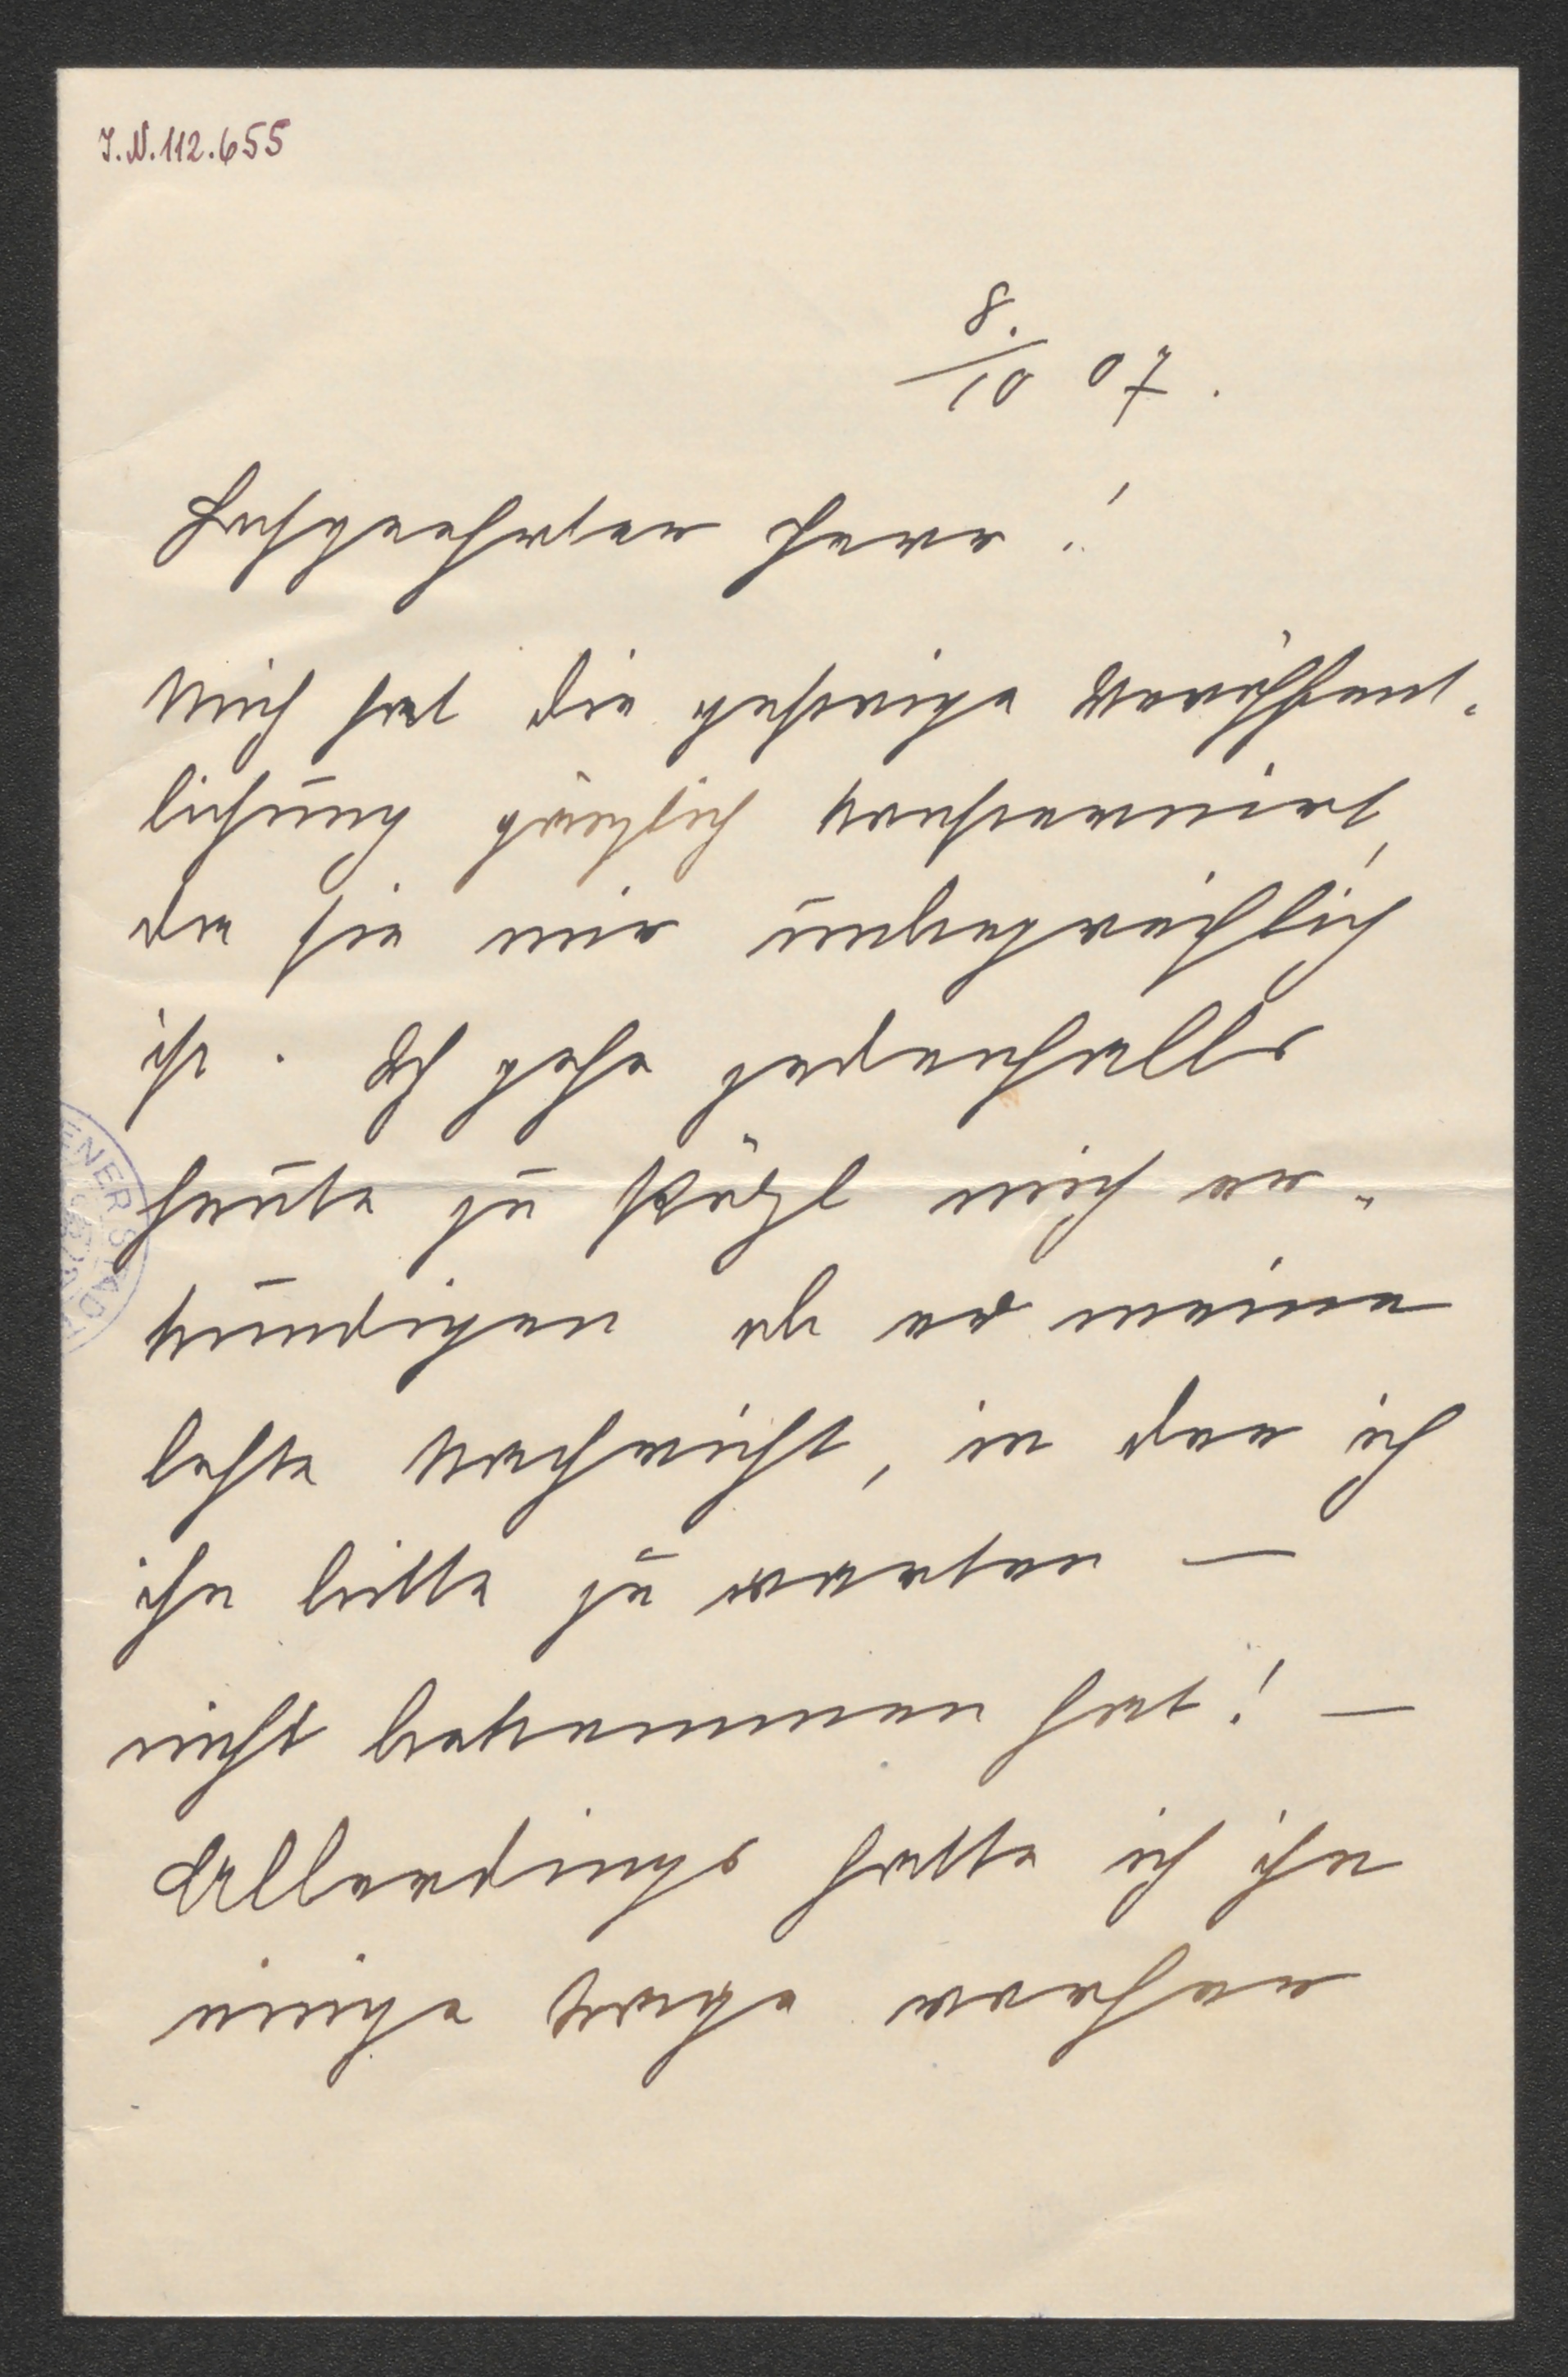 I.N. 112.655
8./10 07.
Hochgeehrter Herr!
Mich hat die gestrige Veröffent-
lichung gänzlich konsterniert,
da sie mir unbegreiflich
ist. Ich gehe jedenfalls
heute zu Stößl mich er-
kundigen ob er meine
letzte Nachricht, in der ich
ihn bitte zu warten –
nicht bekommen hat! –
Allerdings hatte ich ihn
einige Tage vorher
ENER STAD